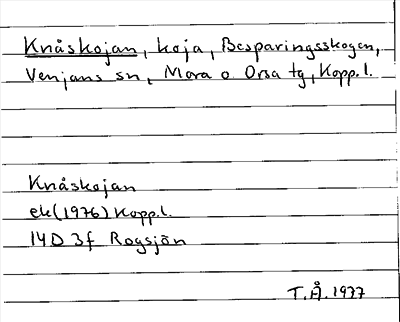 Knåskojan, koja, Besparingsskogen,
Venjans sn, Mora o Orsa tg, Kopp.l.
Knåskojan
ek(1976) Kopp.l.
14D 3f Rogsjön
T.Å. 1977